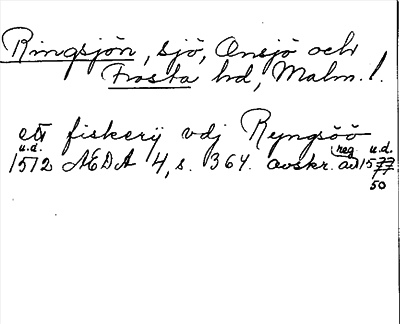 Ringsjön, sjö, Onsjö och
Frosta hd, Malm. l.
ett fiskerij vdj Ryngsöö
u.d. reg u.d.
1512 ÆDA 4, s. 364. avskr. av 1577
77
50